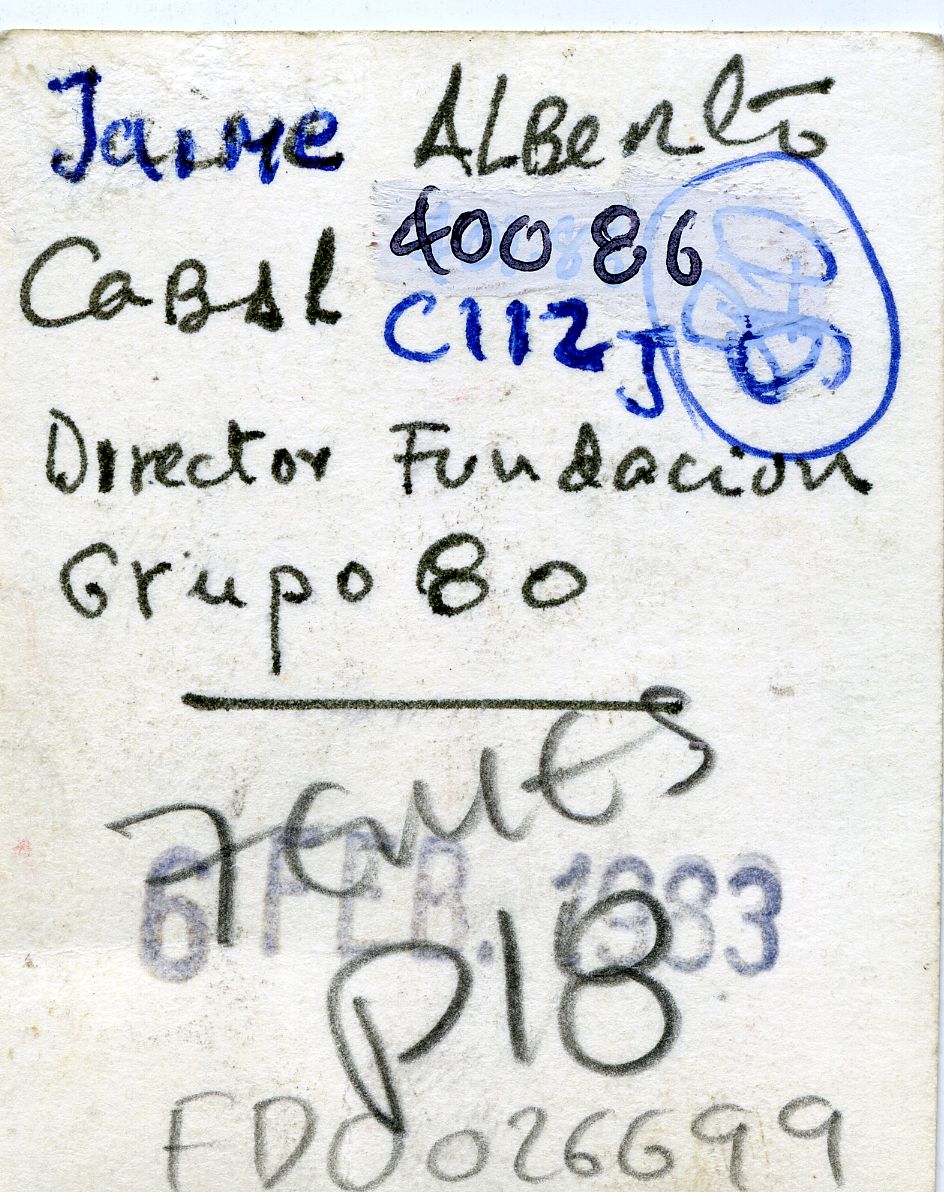 Jaime Alberto
Cabal 400 86
C112J
Director Fundacion
Grupo 80
6 FEB. 1983
P18
FD0026699